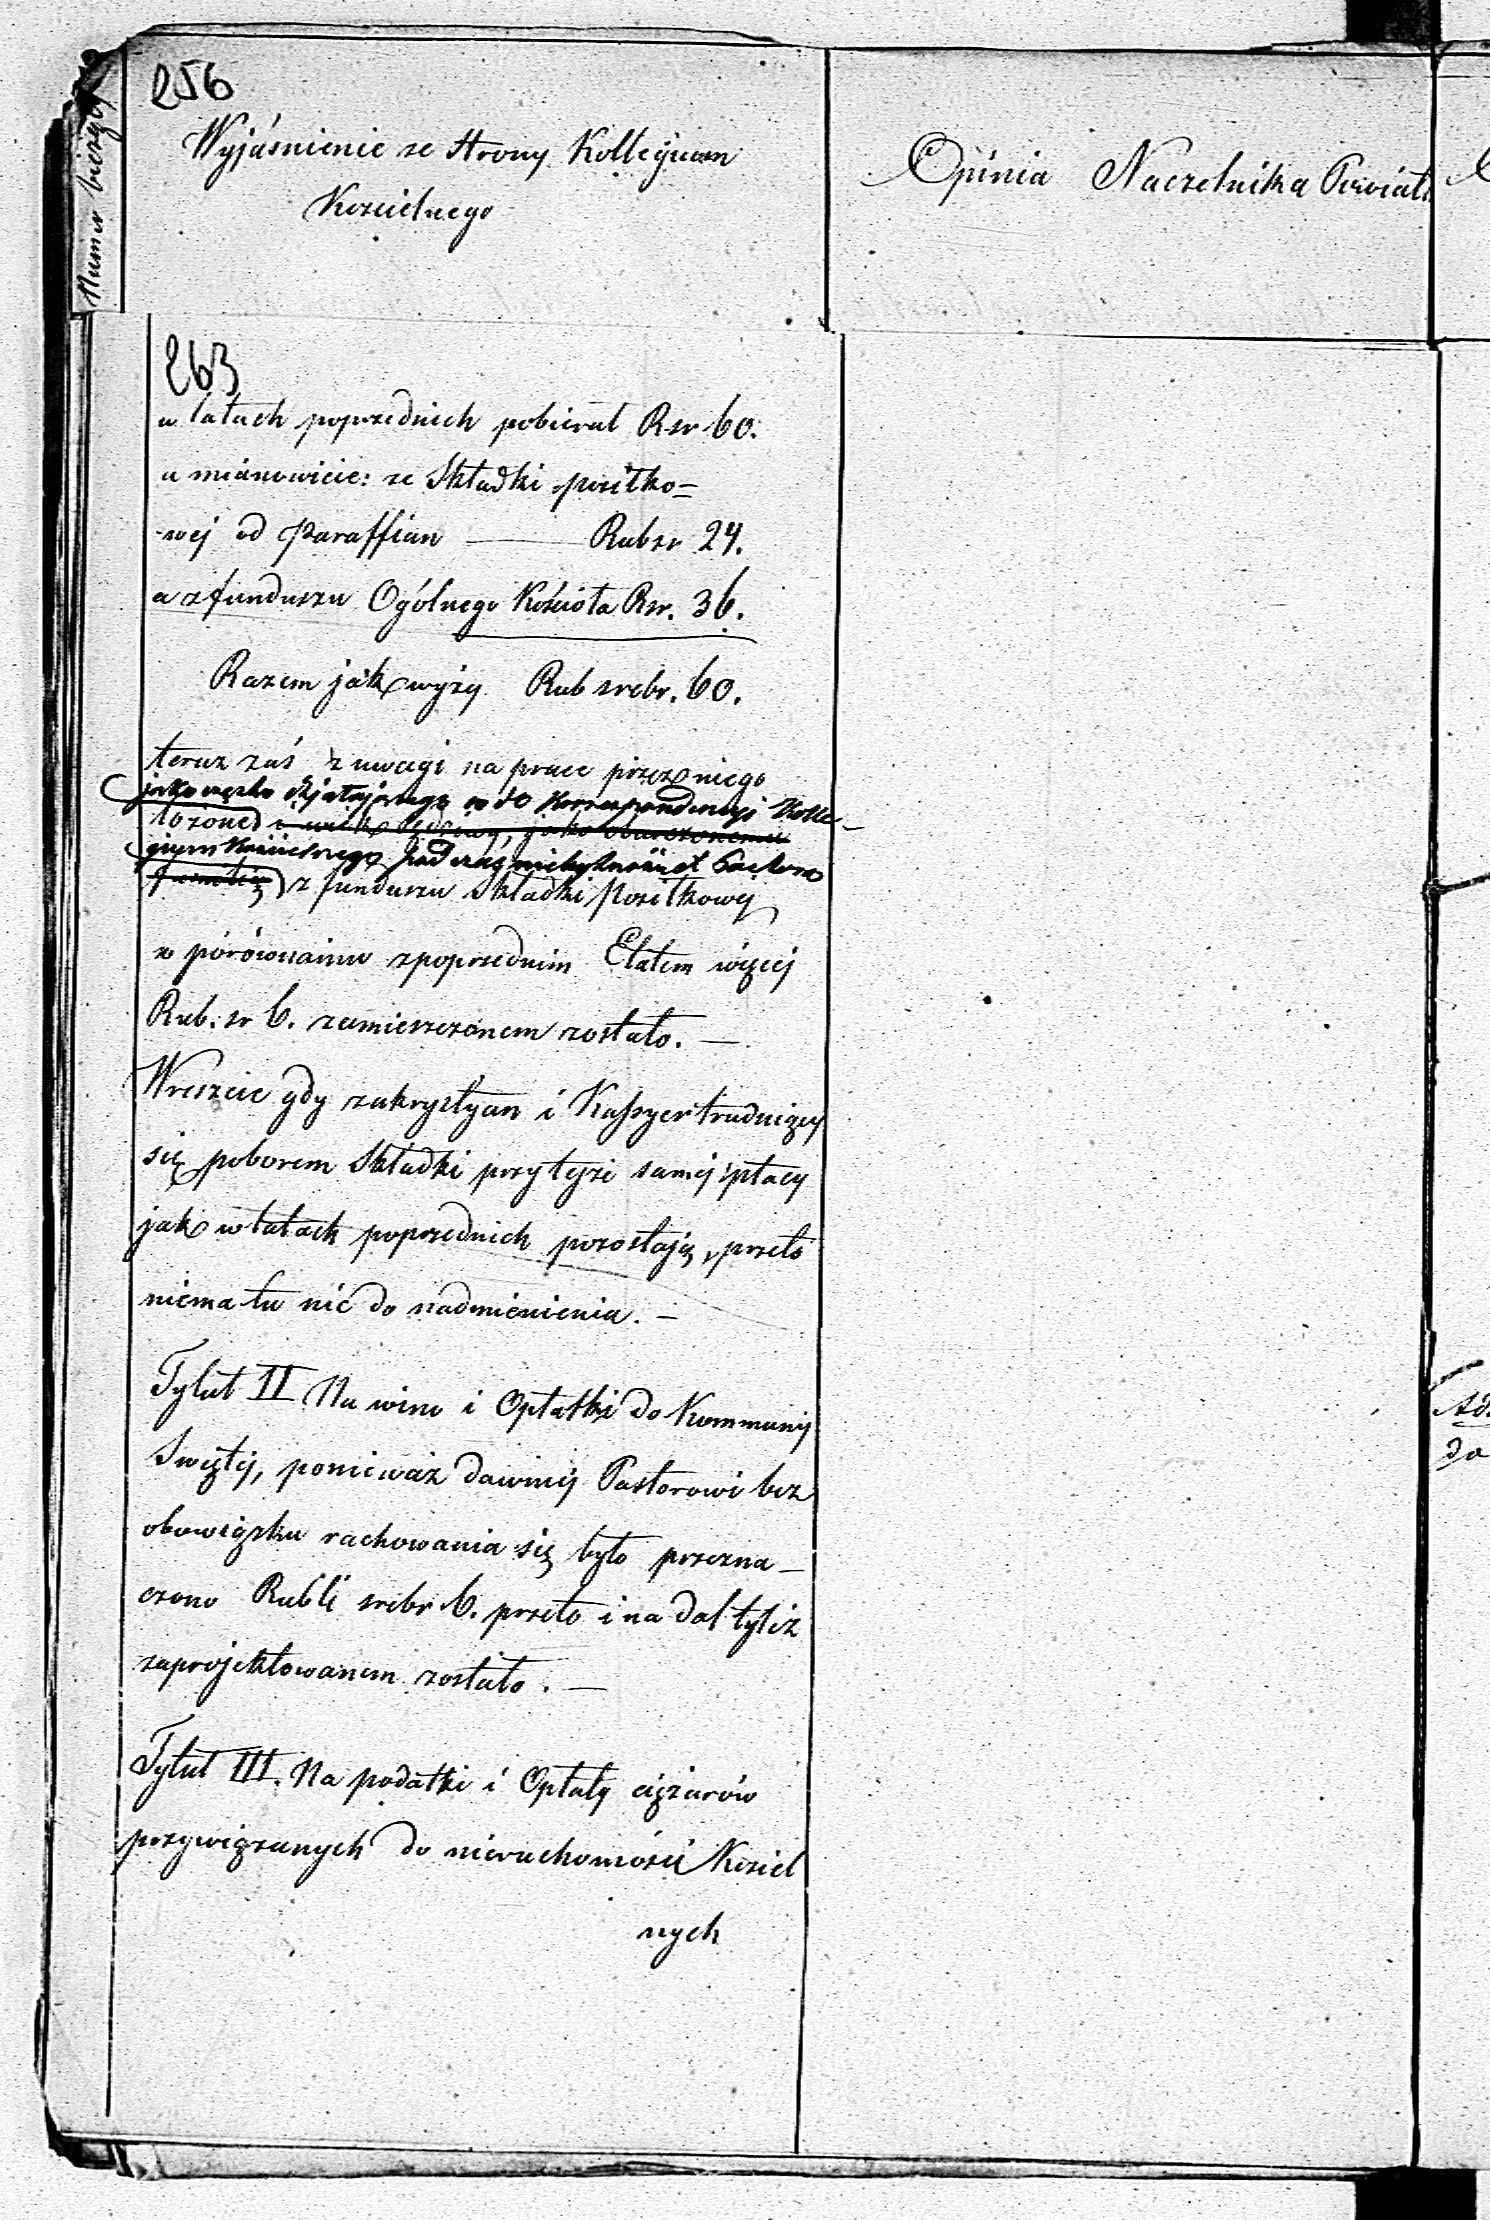 Numer bieżący
256
Wyjaśnienie ze strony Kollegium
Kościelnego
Opinia Naczelnika Powiatu
263
w latach poprzednich pobierał Rsr 60.
a mianowicie: ze Składki posiłko=
wej od Paraffian — Rubsr 24.
a z funduszu Ogólnego Kościoła Rsr. 36.
Razem jak wyżey Rub srebr. 60.
teraz zaś z uwagi na prace przez niego
jako często do Korrespondencyi Kolle-
łożone
gium Kościelnego podczas niebytności Pastora
familią z funduszu Składki Posiłkowej
w porównaniu z poprzednim Etatem więcej
Rub. sr 6. zamieszczonem zostało. —
Wreszcie gdy zakrystyan i Kassyer trudniący
się poborem Składki przy tejże samej płacy
jak w latach poprzednich pozostają, przeto
niema tu nic do nadmienienia. —
Tytuł II Na wino i Opłatki do Kommunij
Swiętej, ponieważ dawniej Pastorowi bez
obowiązku rachowania się było przezna-
czono Rubli srebr 6. przeto i na dal tyleż
zaprojektowanem zostało. —
Tytuł III. Na podatki i Opłaty ciężarów
przywiązanych do nieruchomości Kościel
nych
do